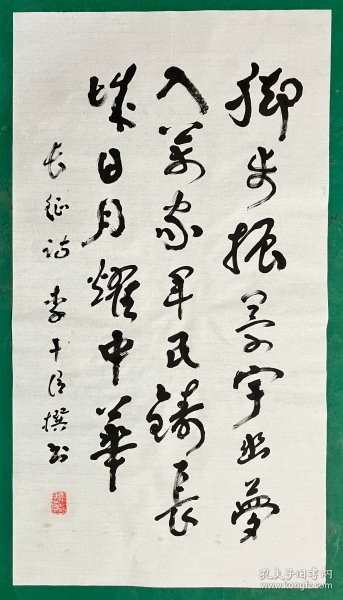 脚步振寰宇出梦
入万家军民铸长
城日月耀中华
长征诗 李千臣撰书
孔夫子旧书网
www.kongfz.com